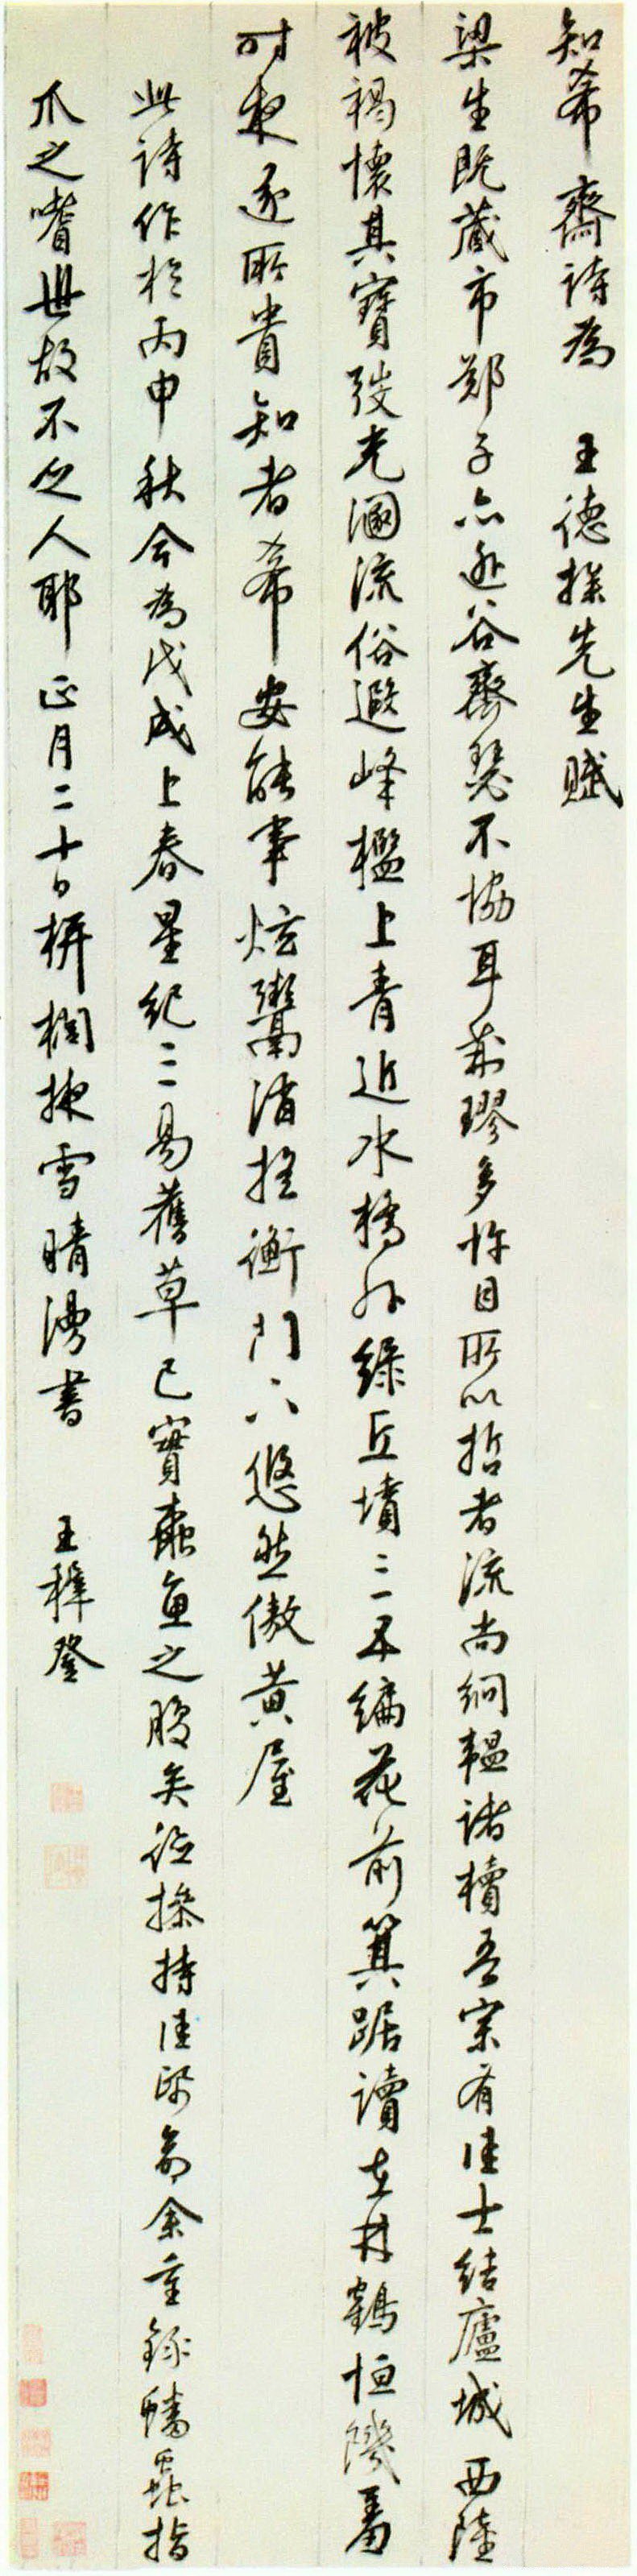 知希齋詩為 王德操先生賦
梁生既藏市鄭子亦逃谷齊瑟不協耳荊璆多忤目所以哲者流尚絅韞諸櫝吾宗有佳士結廬城西陸
被褐懷其寶弢光溷流俗遐峰檻上青近水橋外綠丘墳三五編花前箕踞讀在林鶴恒饑畜
時衆逐所貴知者希安能事炫鬻消搖衡門下悠然傲黃屋
此詩作於丙申秋今為戊戌上春星紀三易舊草已實蠹魚之腹矣德操持佳紙命余重錄蟠蟲指
爪之嗜世故不乏人耶 正月二十日栟櫚掖雪晴漫書 王穉登